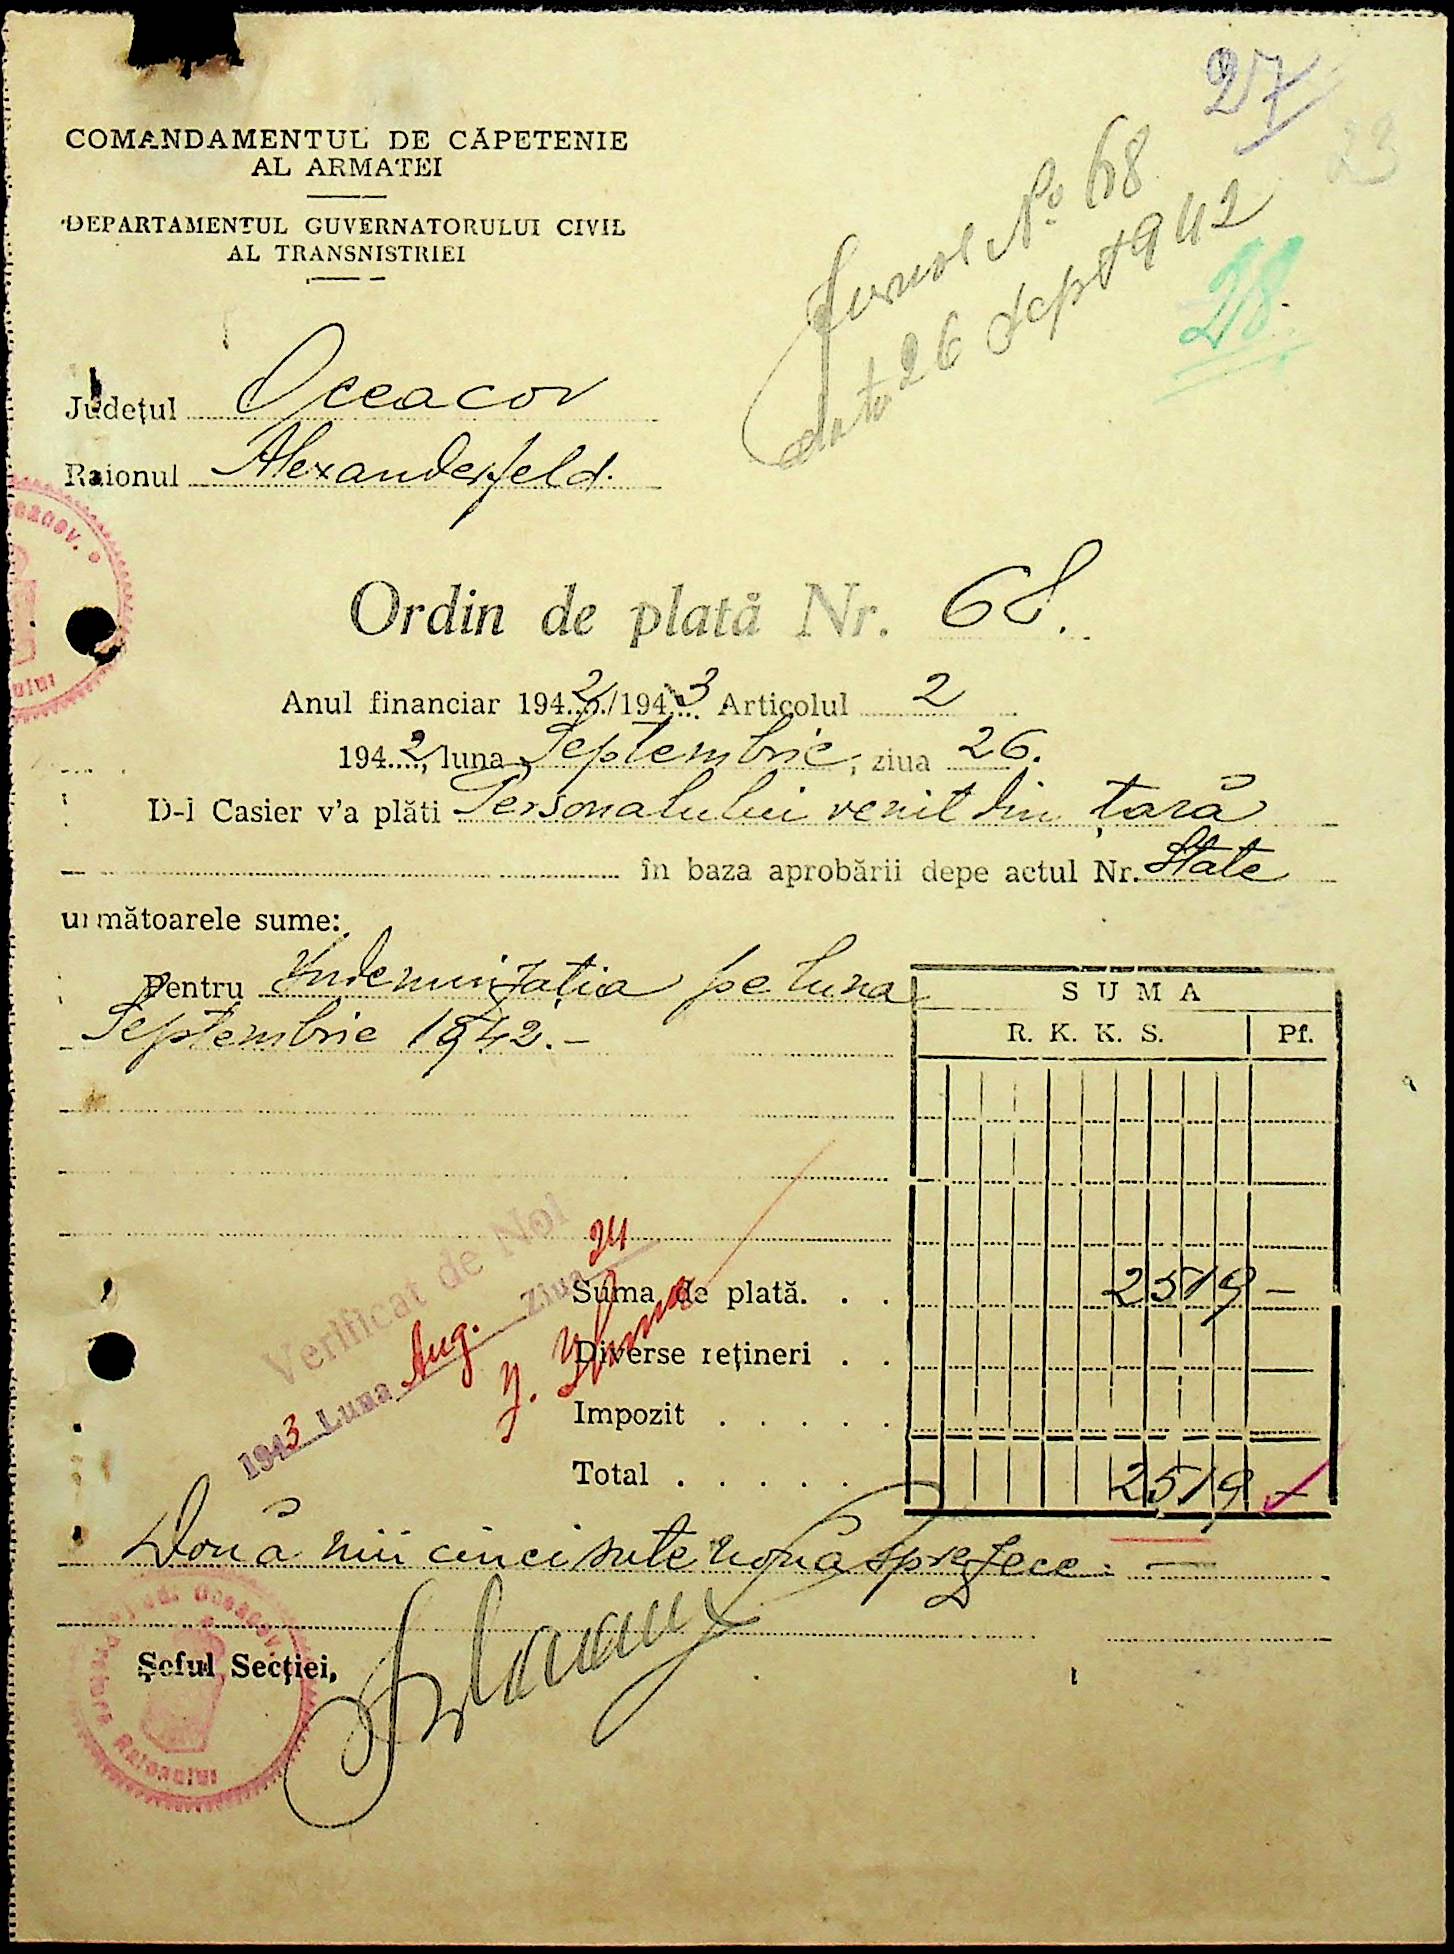 27
23
COMANDAMENTUL DE CĂPETENIE
AL ARMATEI
DEPARTAMENTUL GUVERNATORULUI CIVIL
AL TRANSNISTRIEI
Jurnal No 68
din 26 Sept 1942
28
Județul Oceacov
Raionul Alexanderfeld.
Ordin de plată Nr. 68.
Anul financiar 1942/1943 Articolul 2
1942, luna Septembrie, ziua 26.
D-l Casier v'a plăti Personalului venit din țară
în baza aprobării depe actul Nr. State
următoarele sume:
Pentru Indemnizația pe luna
Septembrie 1942.-
SUMA
R. K. K. S. Pf.
Verificat de Noi
1943 Luna Aug. Ziua 24
Suma de plată. . . 2519 —
Diverse rețineri . .
Impozit . . . . .
Total . . . . . 2519 —
Două mii cinci sute nouăsprezece. —
Șeful Secției,
Jud. Oceacov
Pretura Raionului